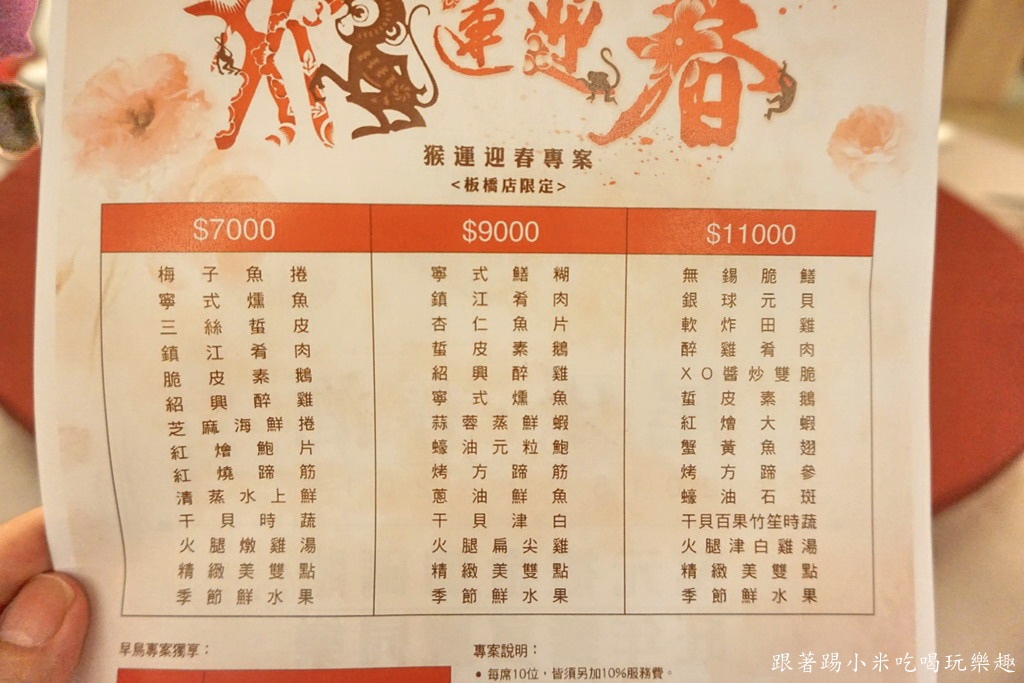 猴運迎春
猴運迎春專案
<板橋店限定>
$7000
梅子魚捲
寧式燻魚
三絲蜇皮
鎮江肴肉
脆皮素鵝
紹興醉雞
芝麻海鮮捲
紅燴鮑片
紅燒蹄筋
清蒸水上鮮
干貝時蔬
火腿燉雞湯
精緻美雙點
季節鮮水果
$9000
寧式鱔糊
鎮江肴肉
杏仁魚片
蜇皮素鵝
紹興醉雞
寧式燻魚
蒜蓉蒸鮮蝦
蠔油元粒鮑
烤方蹄筋
蔥油鮮魚
干貝津白
火腿扁尖雞
精緻美雙點
季節鮮水果
$11000
無錫脆鱔
銀球元貝
軟炸田雞
醉雞肴肉
XO醬炒雙脆
蜇皮素鵝
紅燴大蝦
蟹黃魚翅
烤方蹄參
蠔油石斑
干貝百果竹笙時蔬
火腿津白雞湯
精緻美雙點
季節鮮水果
早鳥專案獨享：
專案說明：
• 每席10位，皆須另加10%服務費。
跟著踢小米吃喝玩樂趣